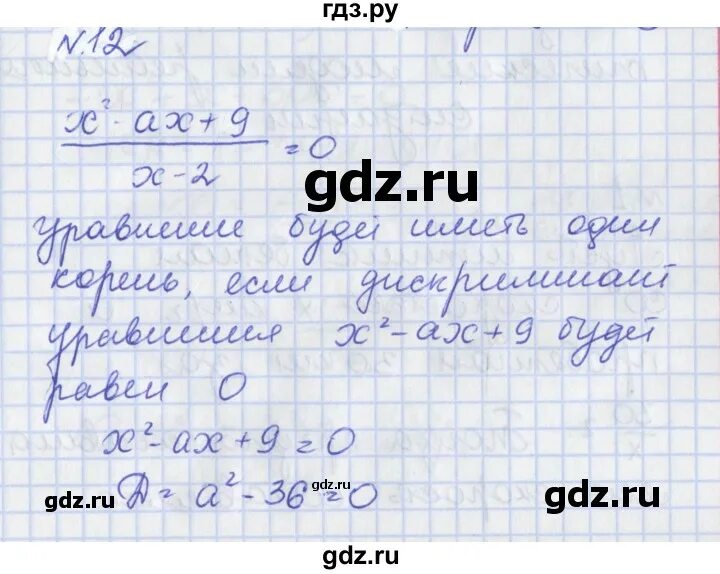 гдз.ру
N.12
x² - ax + 9
x - 2
= 0
gdz.ru
уравнение будет иметь один
корень, если дискриминант
уравнения x² - ax + 9 будет
равен 0
x² - ax + 9 = 0
gdz.ru
Д = a² - 36 = 0
gdz.ru
gdz.ru
gdz.ru